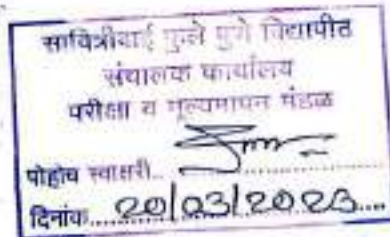 सावित्रीबाई फुले पुणे विद्यापीठ
संचालक कार्यालय
परीक्षा व मूल्यमापन मंडळ
पोहोच स्वाक्षरी..
दिनांक.... 20/03/2023....